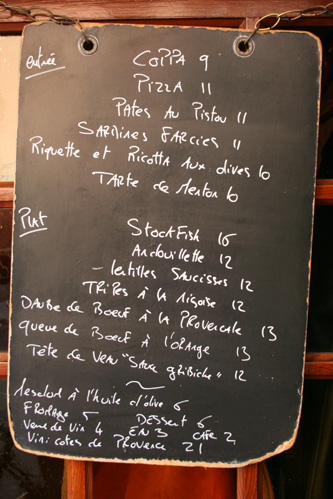 entrée
COPPA 9
PIZZA 11
PATES AU PISTOU 11
SARDINES FARCIES 11
Riquette et Ricotta aux olives 10
TARTE de Menton 10
Plat
STOCKFISH 16
Andouillette 12
- lentilles SAUCISSES 12
TRIPES à la niçoise 12
DAUBE de BOEUF à la PROVENCALE 13
queue de BOEUF à l'ORANGE 13
Tête de VEAU "SAUCE gribiche" 12
Mesclun à l'huile d'olive 6
FROMAGE 5 DESSERT 6
Verre de Vin 4 EAU 3 CAFE 2
Vini cotes de PROVENCE 21